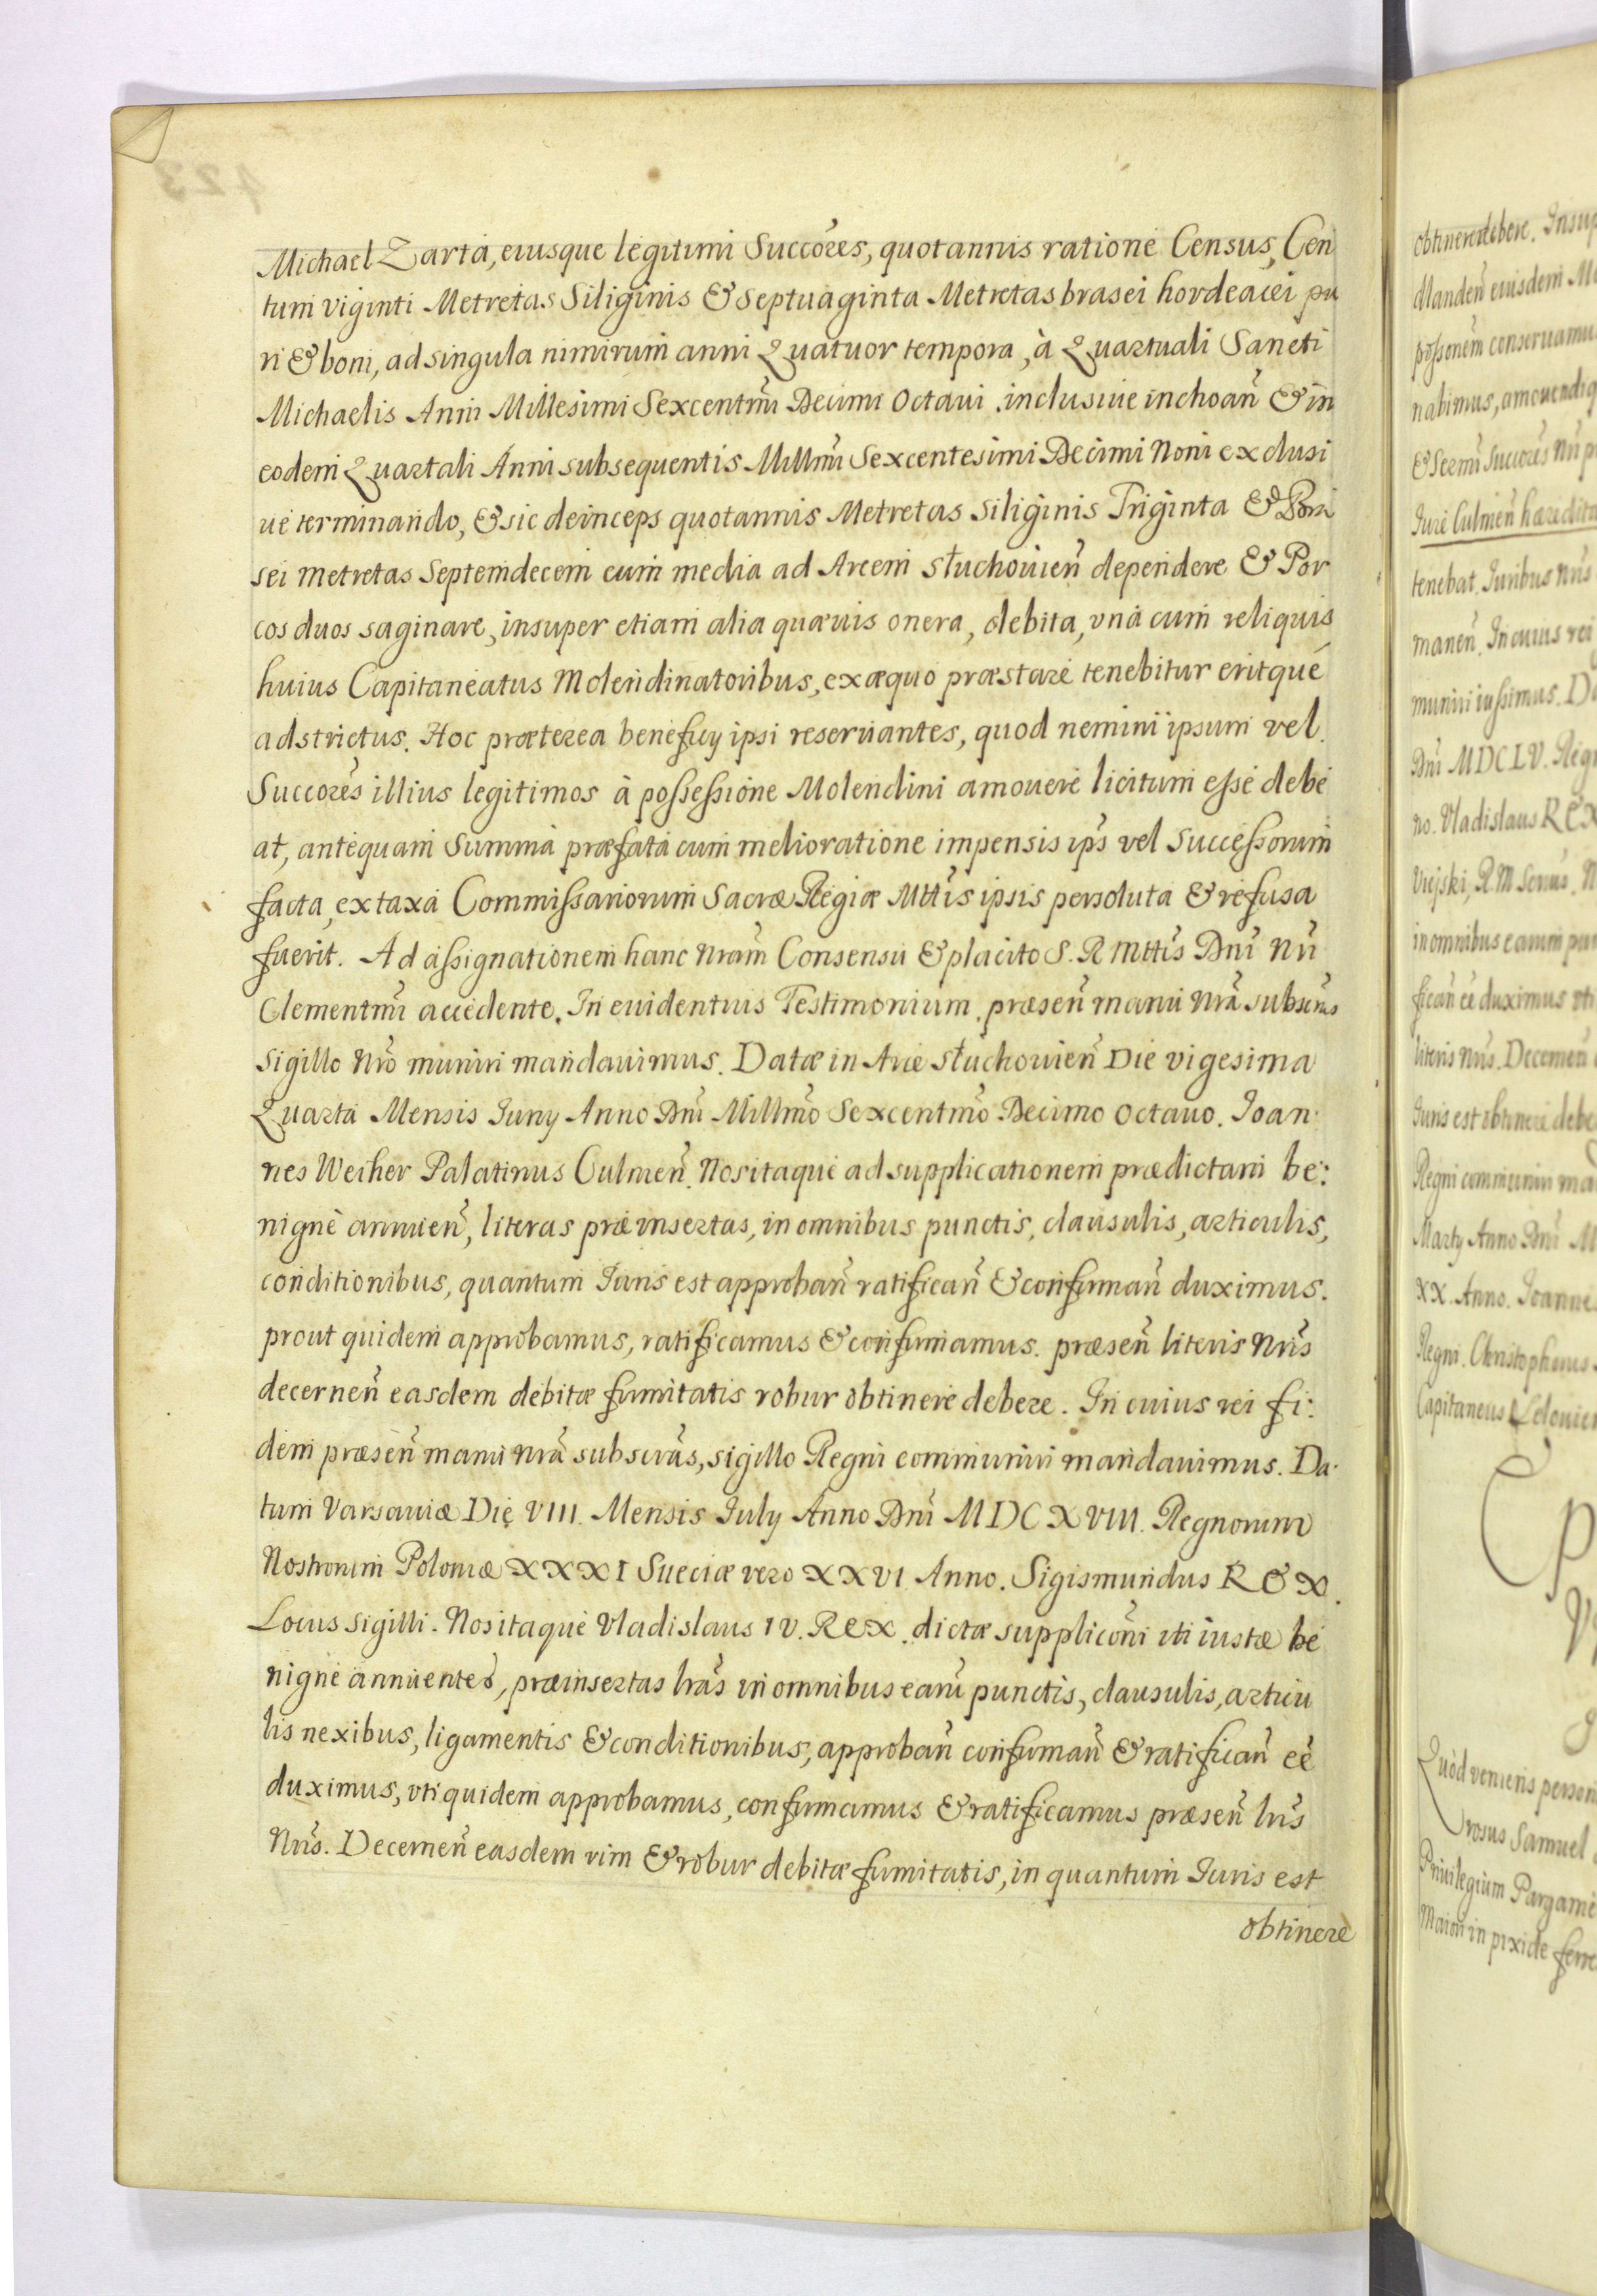 Michael Zarta, eiusque legitimi Succõres, quotannis ratione Census, Cen
tum viginti Metretas Siliginis & Septuaginta Metretas brasei hordeacei pu
ri & boni, ad singula nimirum anni Quatuor tempora, à Quartuali Sancti
Michaelis Anni Millesimi Sexcentm̃i Decimi Octaui inclusiue inchoañ & in
eodem Quartali Anni subsequentis Millm̃i Sexcentesimi Decimi Noni exclusi
ue terminando, & sic deinceps quotannis Metretas Siliginis Triginta &
sei metretas Septemdecem cum media ad Arcem Słuchouieñ dependere & Por
cos duos saginare, insuper etiam alia quæuis onera, debita, vnà cum reliquis
huius Capitaneatus Molendinatoribus, ex æquo præstare tenebitur eritque
adstrictus. Hoc præterea beneficy ipsi reseruantes, quod nemini ipsum vel
Succorẽs illius legitimos à possessione Molendini amouere licitum esse debe
at, antequam summa præfata cum melioratione impensis ips̃ vel Successorum
facta, ex taxa Commissariorum Sacræ Regiæ Mttis̃ ipsis persoluta & refusa
fuerit. Ad assignationem hanc Nram̃ Consensu & placito S. R Mttis̃ Dnĩ Nr̃i
Clementm̃i accedente. In euidentius Testimonium præseñ manu Nrã subscrãs
sigillo Nrõ muniri mandauimus. Datæ in Arce Słuchouieñ Die vigesima
Quarta Mensis Iuny Anno Dnĩ Millmõ Sexcentmõ Decimo Octauo. Joan
nes Weiher Palatinus Culmeñ. Nos itaque ad supplicationem prædictam be:
nignè annueñ, literas præinsertas, in omnibus punctis, clausulis, articulis,
conditionibus, quantum Iuris est approbañ ratificañ & confirmañ duximus.
prout quidem approbamus, ratificamus & confirmamus. præseñ literis Nrĩs
decerneñ easdem debitæ firmitatis robur obtinere debere. In cuius rei fi:
dem præseñ manu nrã subscrãs, sigillo Regni communiri mandauimus. Da
tum Varsauiæ Die VIII. Mensis July Anno Dnĩ MDCXVIII. Regnorum
Nostrorum Poloniæ XXXI Sueciæ vero XXVI Anno. Sigismundus REX.
Locus sigilli. Nos itaque Vladislaus IV. REX. dictæ suppliconĩ vti iustæ be
nignè annuentes, præinsertas lrãs in omnibus earũ punctis, clausulis, articu
lis nexibus, ligamentis & conditionibus, approbañ confirmañ & ratificañ eẽ
duximus, vti quidem approbamus, confirmamus & ratificamus præseñ lrĩs
Nrĩs. Decerneñ easdem vim & robur debitæ firmitatis, in quantum Iuris est
obtinere
obtinere debere. Insup
possonem̃ conseruamu
nabimus, amouendiq
Iure Culmeñ hæredita
tenebat. Iuribus nrĩs
maneñ. In cuius rei
muniri iussimus. Da
Dnĩ MDCLV. Reg
no. Vladislaus REX
in omnibus earum pun
ficañ eẽ duximus vti
literis nrĩs. Decerneñ
Iuris est obtinere debe
Regni communiri ma
Marty Anno Dnĩ M
XX. Anno. Joanne
Regni. Christophorus
Quod veniens person
rosus Samuel
Priuilegium Pargame
Maiori in pixide ferre
423